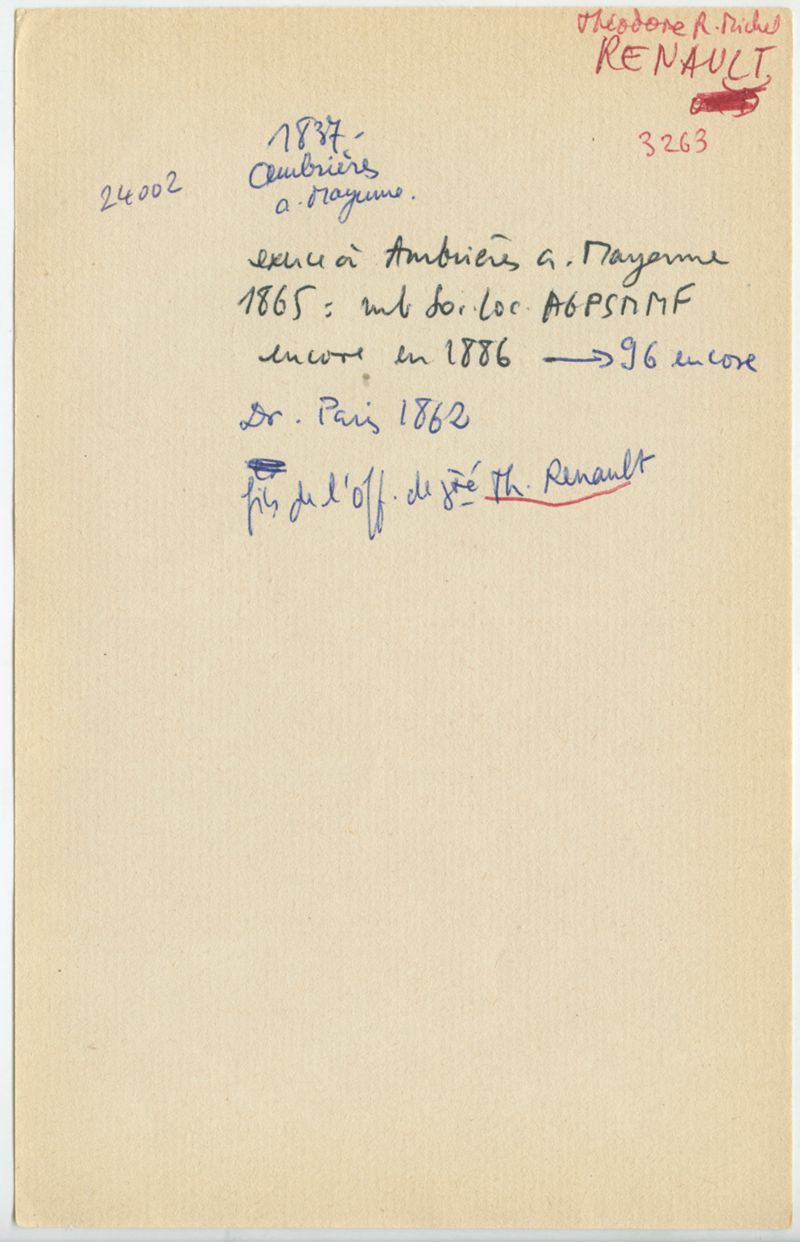 Théodore R. Michel
RENAULT
3263
1837-
Ambrières
a. Mayenne.
24002
exerce à Ambrières a. Mayenne
1865 : mb Soc. loc. AGPSMMF
encore en 1886 → 96 encore
Dr. Paris 1862
fils de l'off. de sté Th. Renault